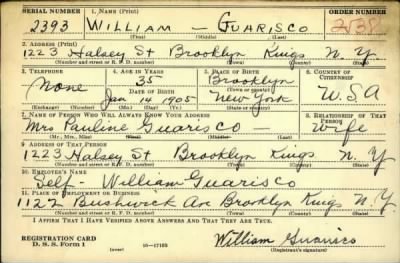 SERIAL NUMBER 1. NAME (Print) ORDER NUMBER
2393 WILLIAM — GUARISCO 2138
(First) (Middle) (Last)
2. ADDRESS (Print)
1223 Halsey St Brooklyn Kings N.Y.
(Number and street or R. F. D. number) (Town) (County) (State)
3. TELEPHONE 4. AGE IN YEARS 5. PLACE OF BIRTH 6. COUNTRY OF CITIZENSHIP
None 35 Brooklyn
DATE OF BIRTH (Town or county)
Jan 14 1905 New York U.S.A
(Exchange) (Number) (Mo.) (Day) (Yr.) (State or country)
7. NAME OF PERSON WHO WILL ALWAYS KNOW YOUR ADDRESS 8. RELATIONSHIP OF THAT PERSON
Mrs Pauline Guarisco — Wife
(Mr., Mrs., Miss) (First) (Middle) (Last)
9. ADDRESS OF THAT PERSON
1223 Halsey St Brooklyn Kings N.Y
(Number and street or R. F. D. number) (Town) (County) (State)
10. EMPLOYER'S NAME
Self - William Guarisco
11. PLACE OF EMPLOYMENT OR BUSINESS
1122 Bushwick Av Brooklyn Kings N.Y
(Number and street or R. F. D. number) (Town) (County) (State)
I AFFIRM THAT I HAVE VERIFIED ABOVE ANSWERS AND THAT THEY ARE TRUE.
REGISTRATION CARD
D. S. S. Form 1 (over) 16—17105 William Guarisco
(Registrant's signature)